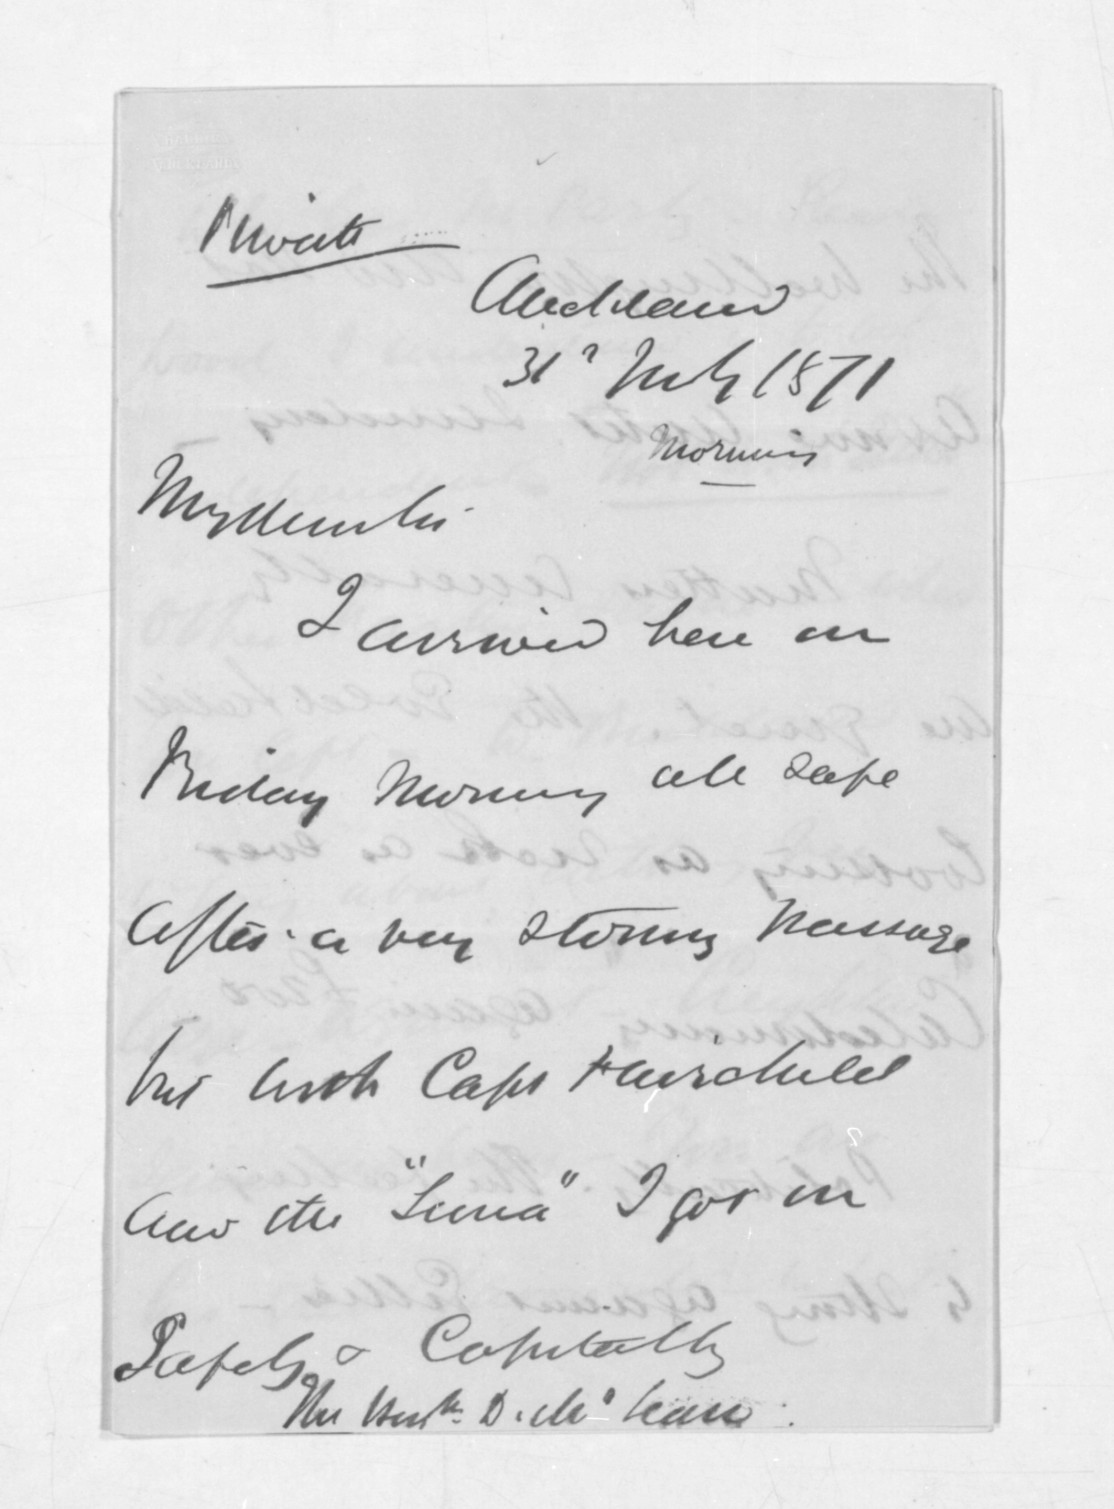 Private
Auckland
31st July 1871
Morning
My dear Sir
I arrived here on
Friday Morning all safe
after a very stormy Passage
but with Capt Fairchild
and the "Luna" I got on
Safely & Capitally
The Honble D. McLean